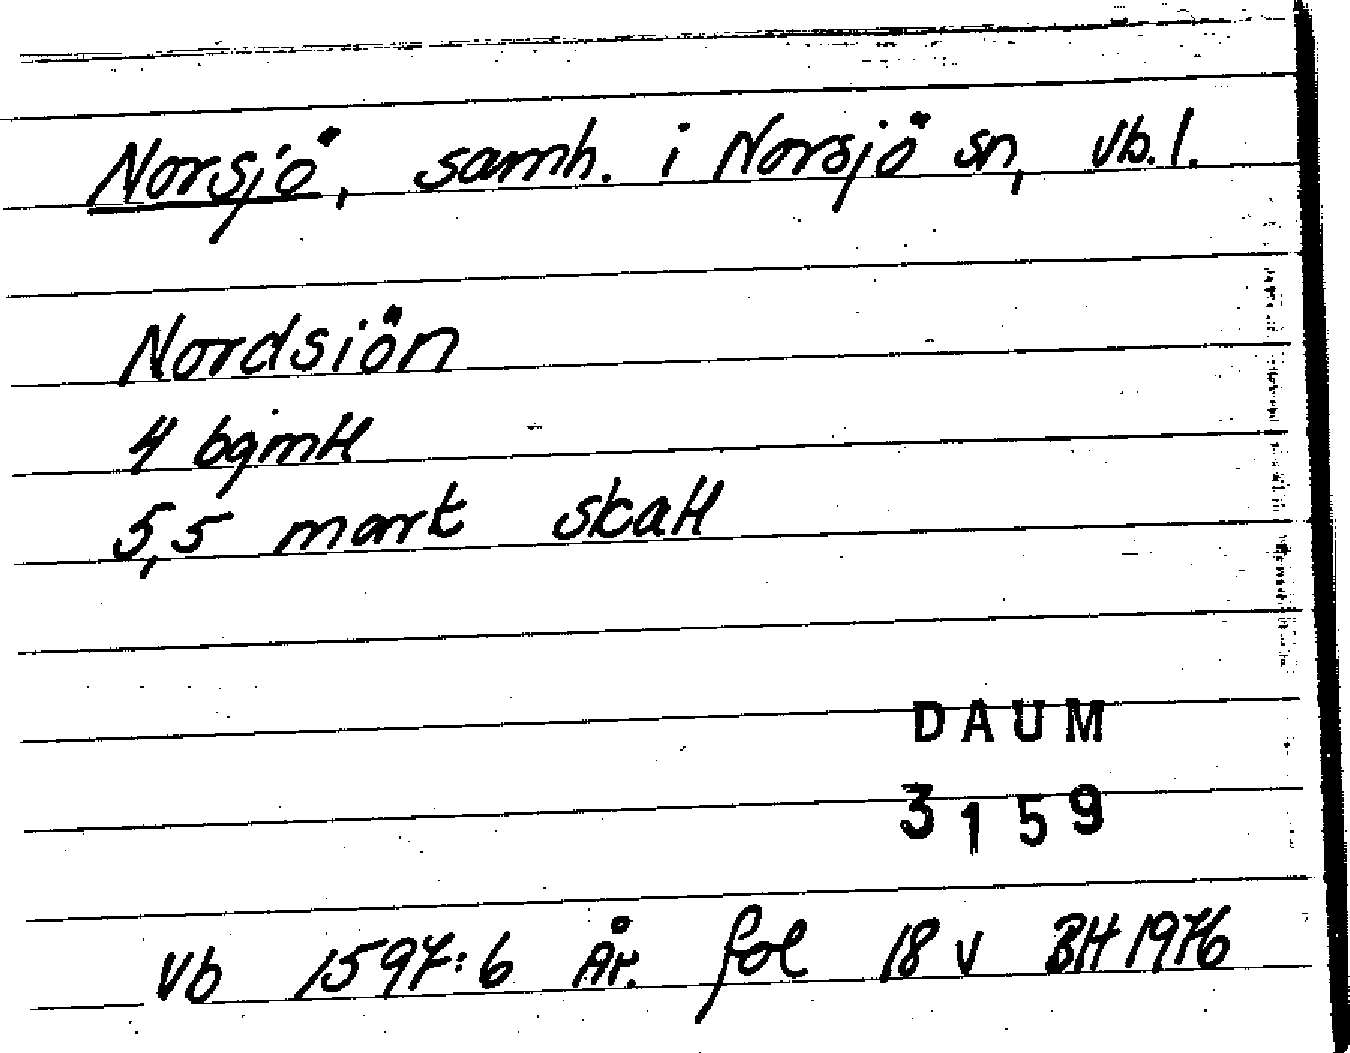 Norsjö, samh. i Norsjö sn, Vb. l.
Nordsiön
4 bgmtl
5,5 mark skatt
DAUM
3159
Vb 1597:6 År. fol 18 v BH 1976